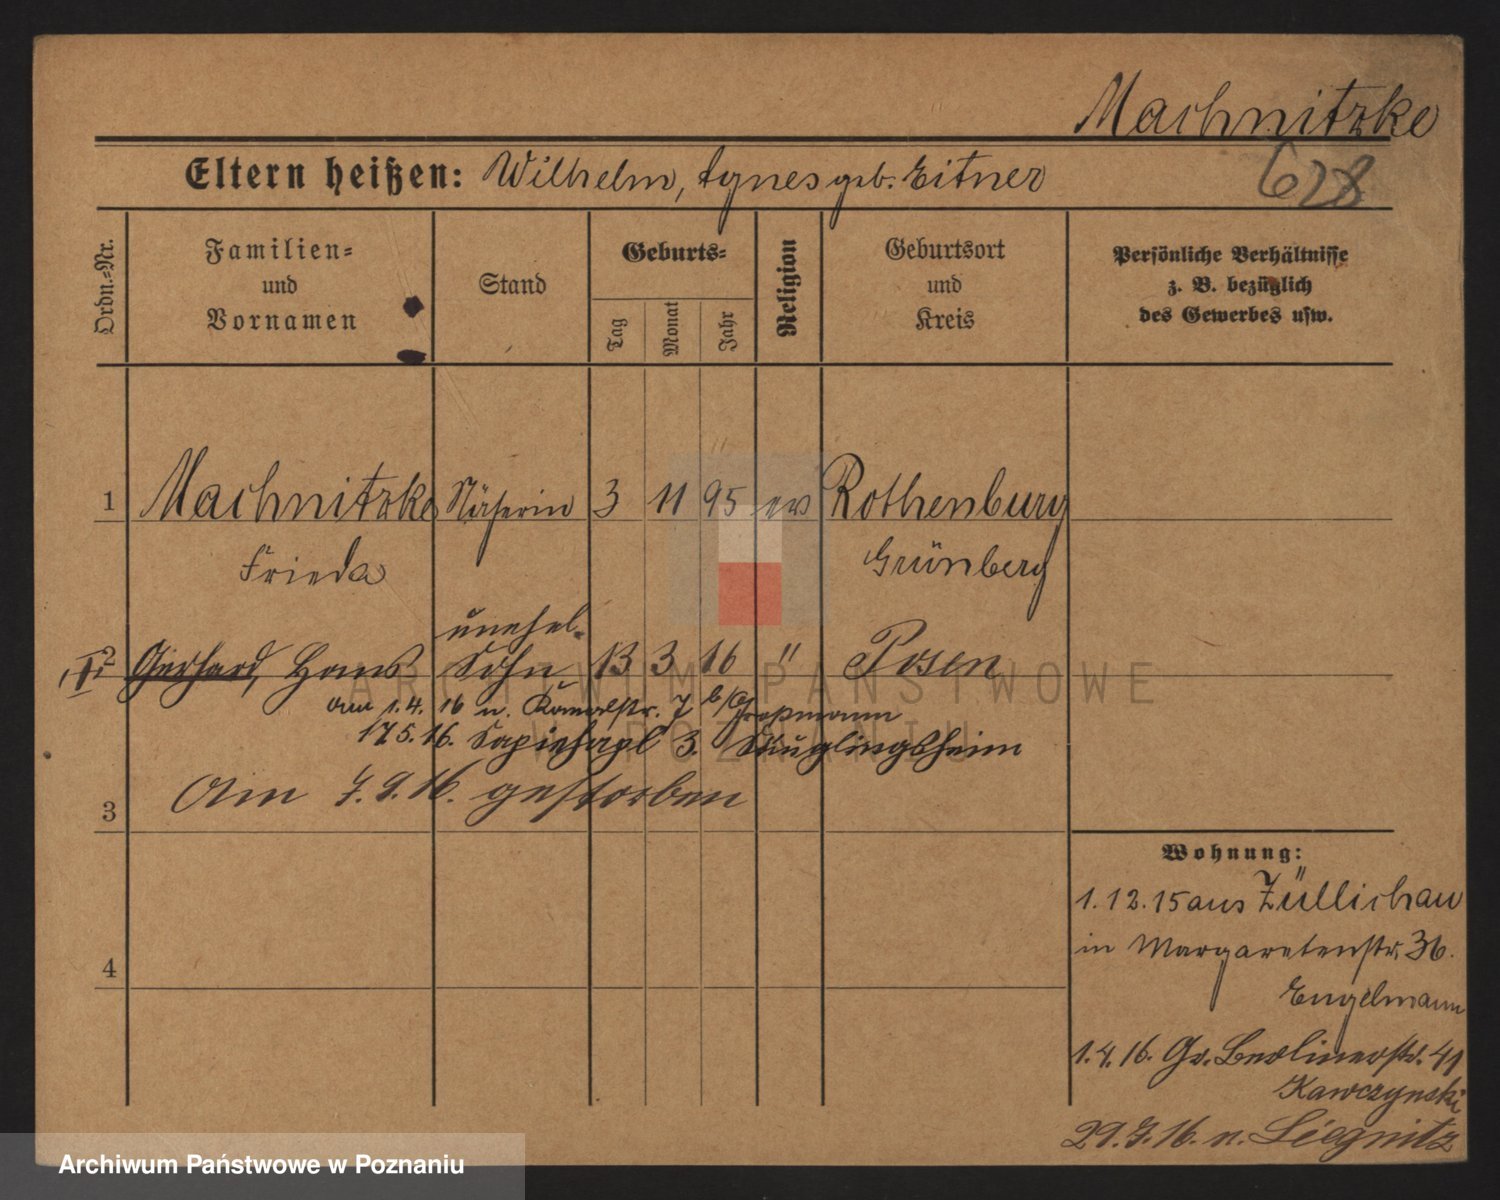 Machnitzke
Eltern heißen: Wilhelm, Agnes geb. Eitner
628
Ordn.-Nr.
Familien-
und
Vornamen
Stand
Geburts-
Tag
Monat
Jahr
Religion
Geburtsort
und
Kreis
Persönliche Verhältnisse
z. B. bezüglich
des Gewerbes usw.
1 Machnitzke Näherin 3 11 95 ev Rothenburg
Frieda Grünberg
unehel.
2 Gerhard, Hans Sohn 13 3 16 " Posen
am 1.4.16 n. Kanalstr. 7 b/
17.5.16. Sapiehapl 3. Säuglingsheim
Am 7.9.16. gestorben
3
4
Wohnung:
1.12.15 aus Züllichau
in Margaretenstr. 36.
Engelmann
1.4.16. Gr. Berlinerstr. 41
Kawczynski
29.7.16. n. Liegnitz
ARCHIWUM PAŃSTWOWE
W POZNANIU
Archiwum Państwowe w Poznaniu